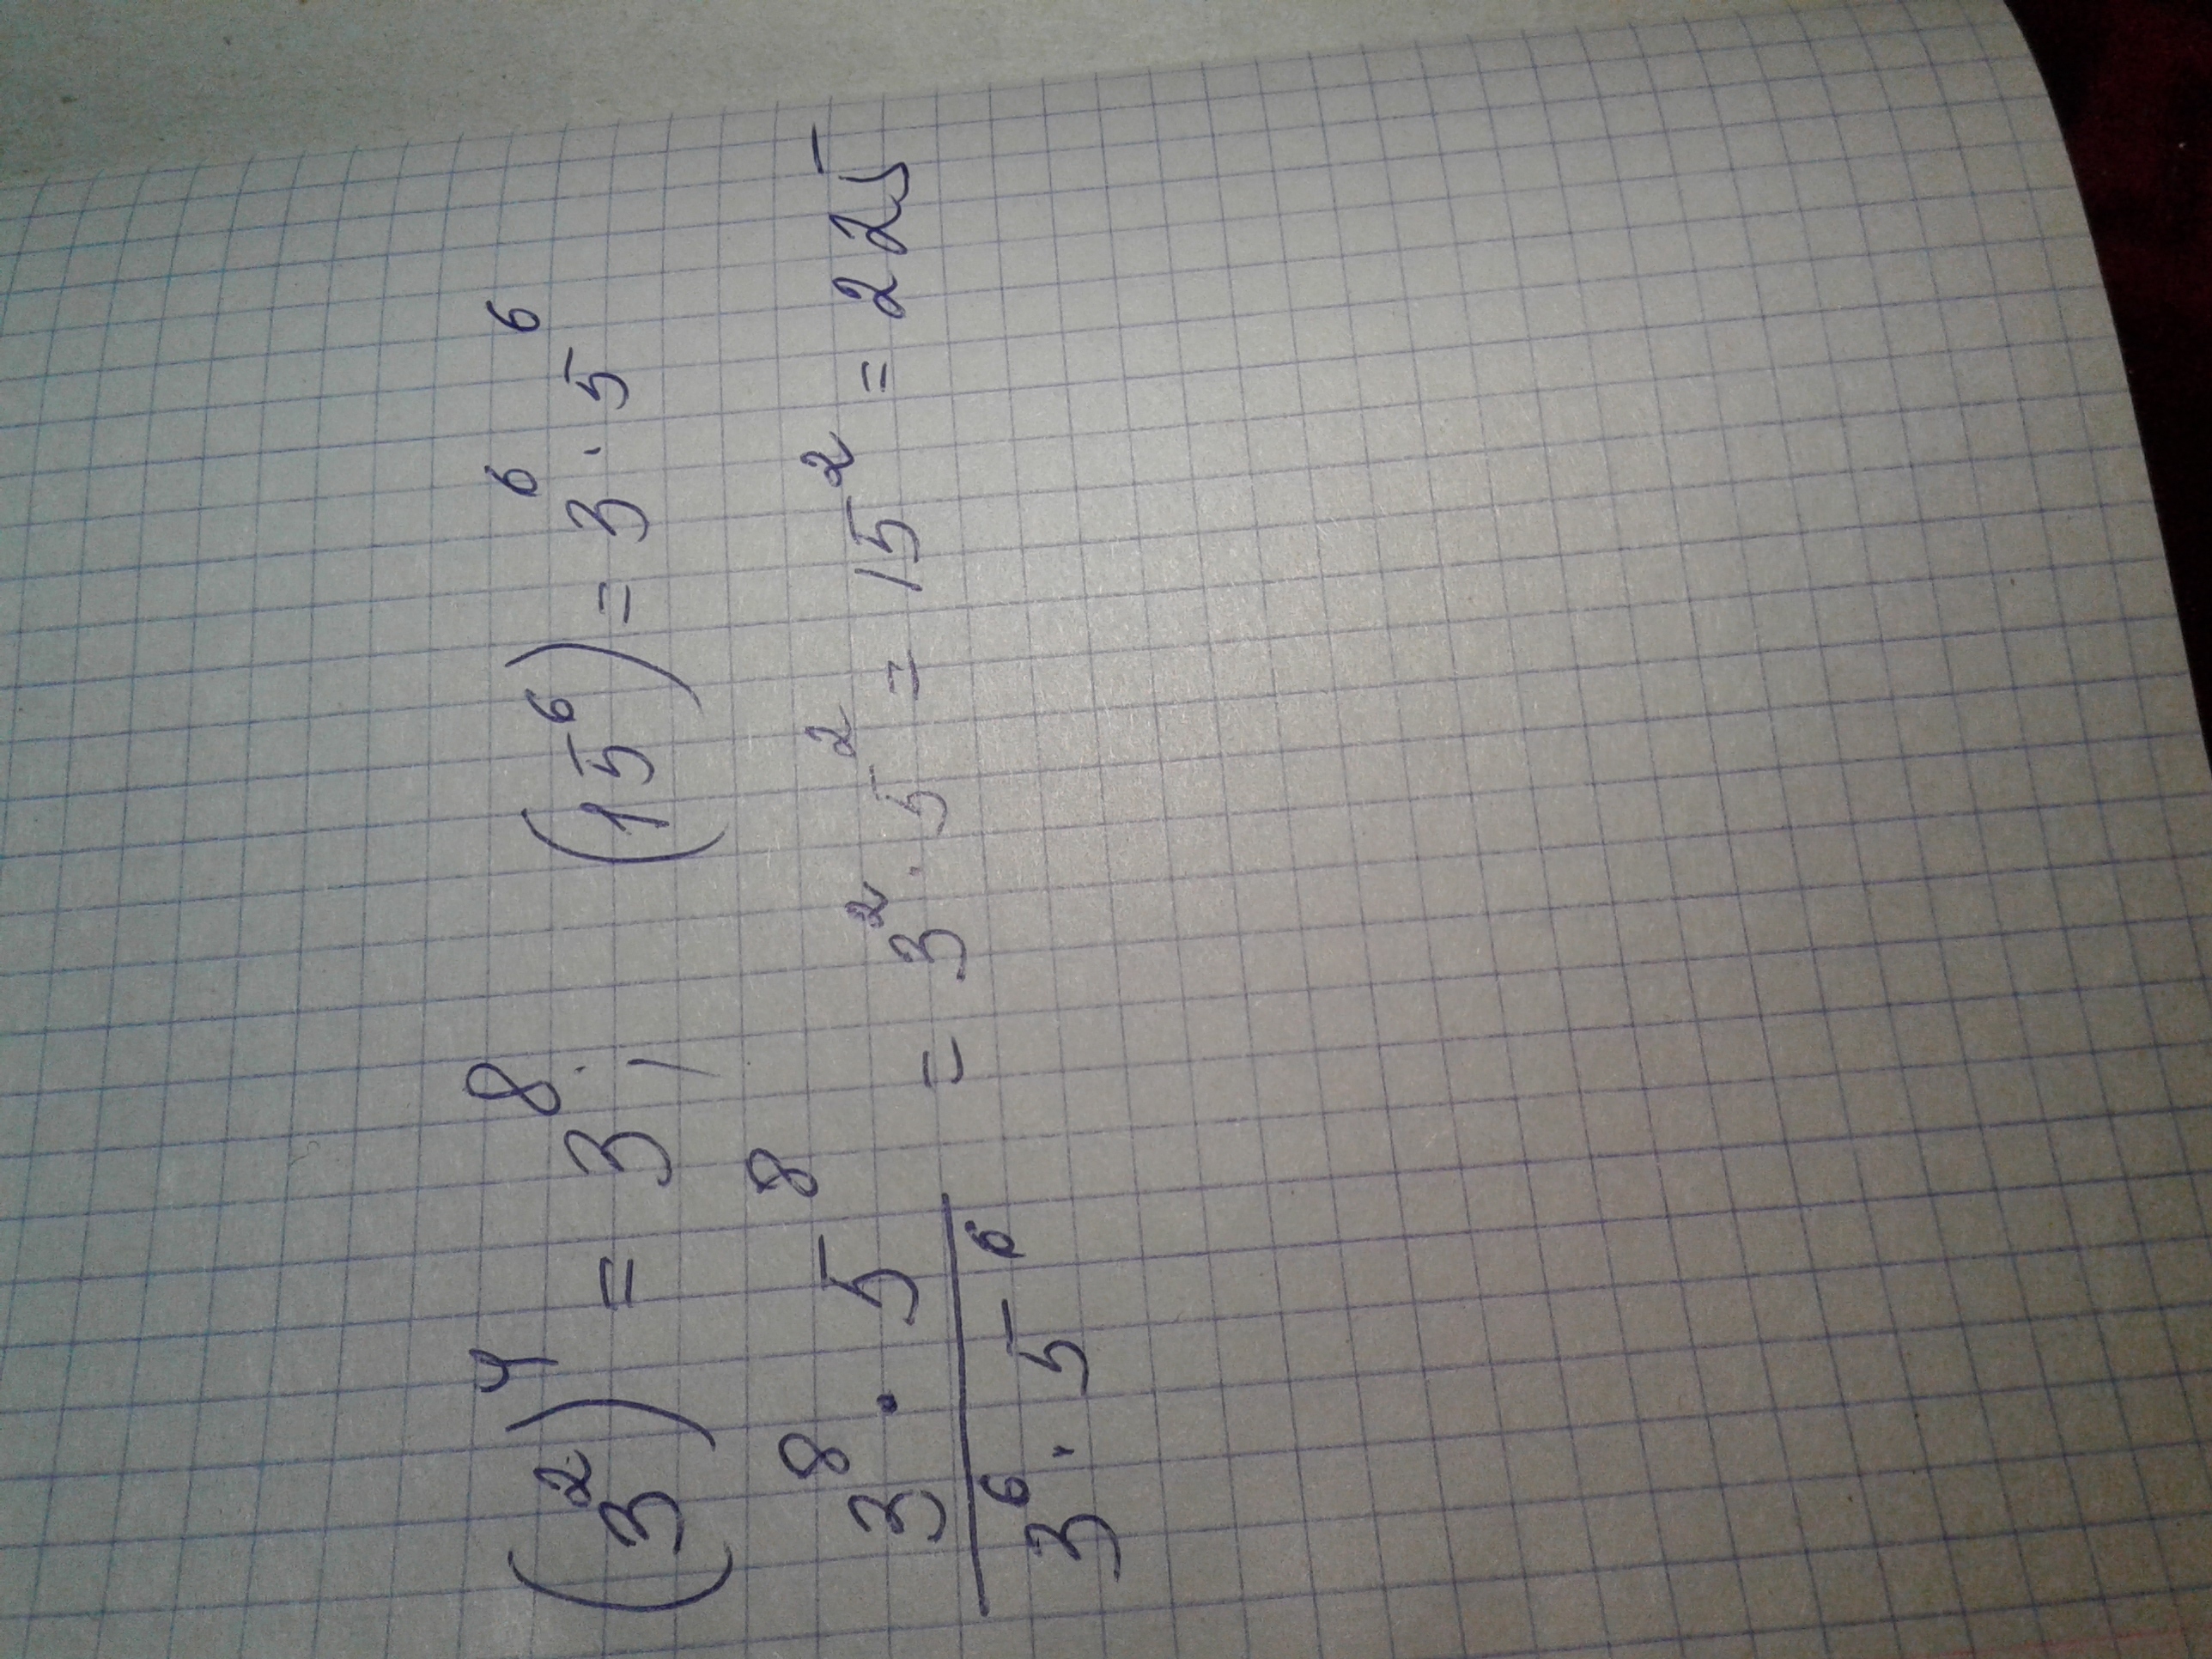 (3²)⁴ = 3⁸; (15⁶) = 3⁶ · 5⁶
3⁸ · 5⁸ / 3⁶ · 5⁶ = 3² · 5² = 15² = 225